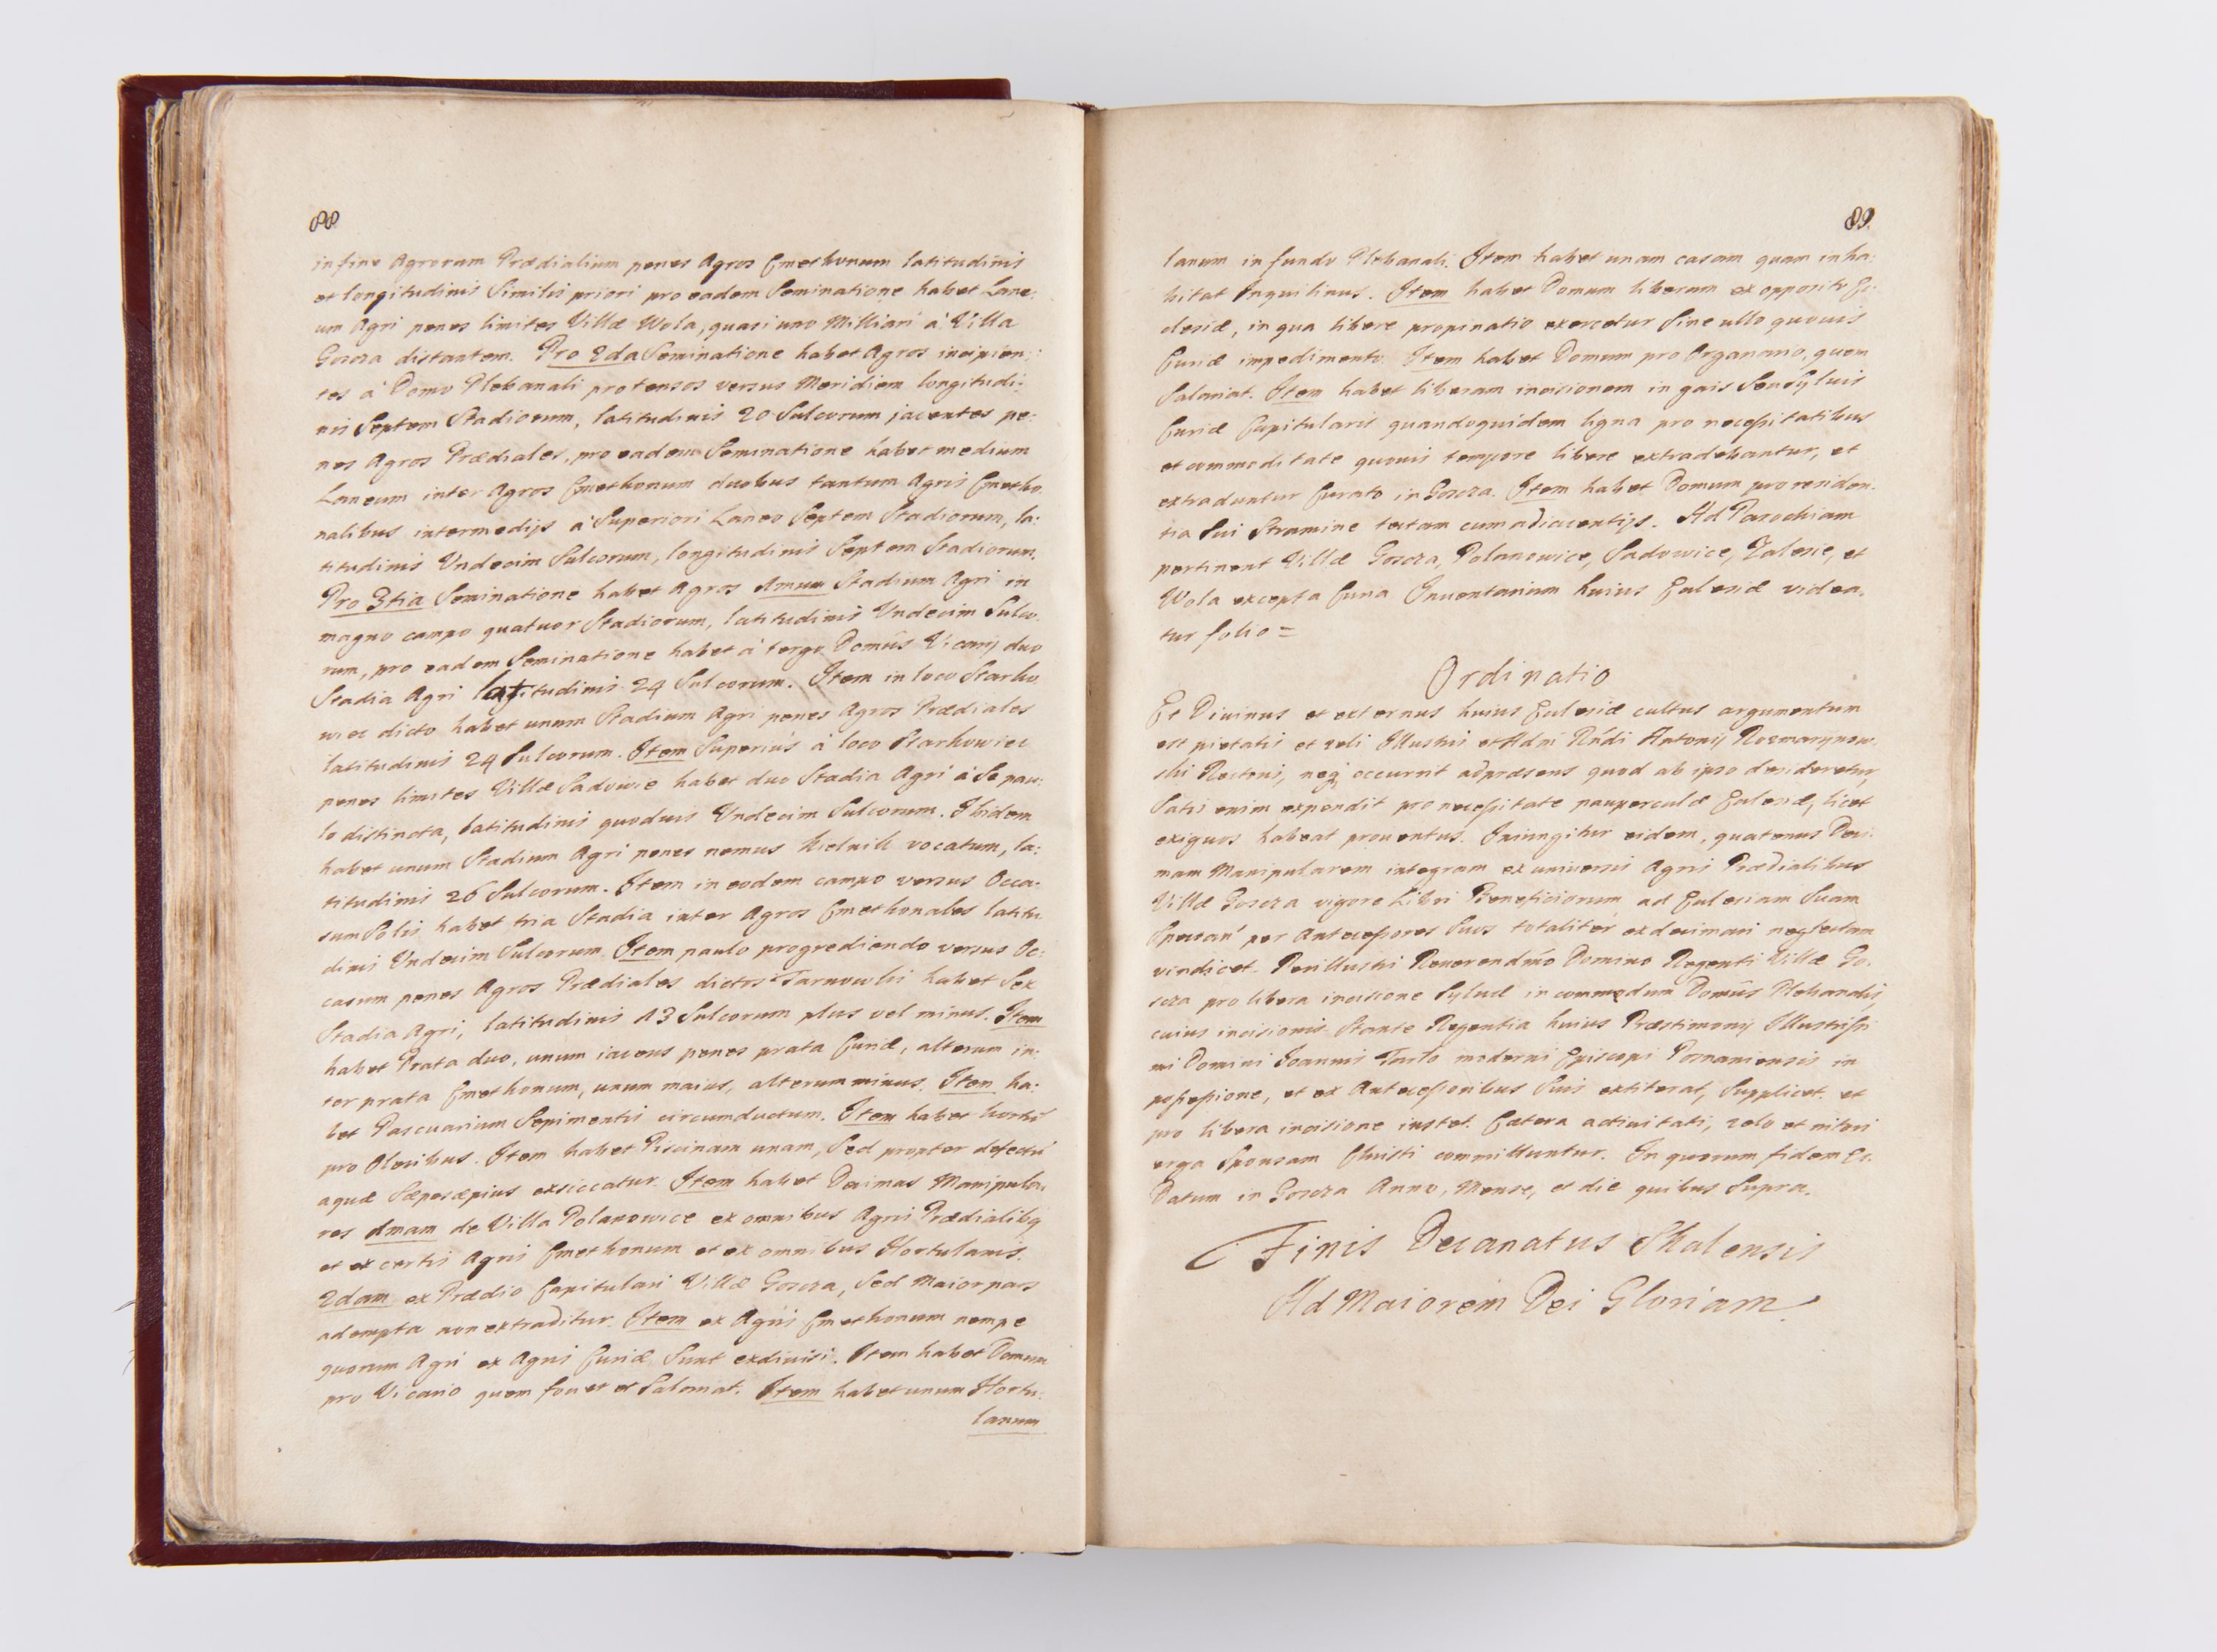 88
in fine Agrorum Prædialium penes Agros Cmethonum latitudinis
et longitudinis Similis priori pro eadem Seminatione habet Lane:
um Agri penes limites Villæ Wola, quasi uno Milliari à Villa
Goscza distantem. Pro 2da Seminatione habet Agros incipien:
tes à Domo Plebanali protensos versus Meridiem longitudi:
nis Septem Stadiorum, latitudinis 20 Sulcorum jacentes pe:
nes Agros Prædiales, pro eadem Seminatione habet medium
Laneum inter Agros Cmethonum duobus tantum Agris Cmetho
nalibus intermedijs à Superiori Laneo Septem Stadiorum, la:
titudinis Undecim Sulcorum, longitudinis Septem Stadiorum.
Pro 3tia Seminatione habet Agros 1mum Stadium Agri in
magno campo quatuor Stadiorum, latitudinis Undecim Sulco.
rum, pro eadem Seminatione habet à tergo Domûs Vicarij duo
Stadia Agri latitudinis 24 Sulcorum. Item in loco Starho
wiec dicto habet unum Stadium Agri penes Agros Prædiales
latitudinis 24 Sulcorum. Item Superiùs à loco Starhowiec
penes limites Villæ Sadowie habet duo Stadia Agri à Se pau:
lo distincta, latitudinis quodvis Undecim Sulcorum. Ibidem
habet unum Stadium Agri penes nemus vocatum, la:
titudinis 26 Sulcorum. Item in eodem campo versus Occa:
sum Solis habet tria Stadia inter Agros Cmethonales latitu
dinis Undecim Sulcorum. Item paulo progrediendo versus Oc:
casum penes Agros Prædiales dictos Tarnowski habet Sex
Stadia Agri, latitudinis 13 Sulcorum plus vel minus. Item
habet Prata duo, unum iacens penes prata Curiæ, alterum in:
ter prata Cmethonum, unum maius, alterum minus. Item ha:
bet Pascuarium Sepimentis circumductum. Item habet hortū
pro Oleribus. Item habet Piscinam unam, Sed propter defectū
aquæ Sæpesæpius exsiccatur. Item habet Decimas Manipula:
res 1mam de Villa Polanowice ex omnibus Agris Prædialibq
et ex certis Agris Cmethonum et ex omnibus Hortulanis.
2dam ex Prædio Capitulari Villæ Goscza, Sed Maior pars
adempta non extraditur. Item ex Agris Cmethonum nempe
quorum Agri ex Agris Curiæ Sunt exdivisi. Item habet Domum
pro Vicario quem fovet et Salariat. Item habet unum Hortu:
lanum
89.
lanum in fundo Plebanali. Item habet unam casam quam inha:
bitat Inquilinus. Item habet Domum liberam ex opposito Ec:
clesiæ, in qua libere propinatio exercetur Sine ullo quovis
Curiæ impedimento. Item habet Domum pro Organario, quem
Salariat. Item habet liberam incisionem in gais Seu Sylvis
Curiæ Capitularis quandoquidem ligna pro necessitatibus
et commoditate quovis tempore libere extradebantur, et
extraduntur Curato in Goscza. Item habet Domum pro residen:
tia Sui Stramine tectam cum adiacentijs. Ad Parochiam
pertinent Villæ Goscza, Polanowice, Sadowice, Zalesie, et
Wola excepta Curia Inventarium huius Ecclesiæ videa:
tur folio =
Ordinatio
Et Divinus et externus huius Ecclesiæ cultus argumentum
est pietatis et zeli Illustris et Admī Rńdi Antonij Rozmarynow
ski Rectoris, neq; occurrit ad præsens quod ab ipso desideretur,
Satis enim expendit pro necessitate pauperculæ Ecclesiæ, licet
exiguos habeat proventus. Iniungitur eidem, quatenus Deci:
mam Manipularem integram ex universis Agris Prædialibus
Villæ Goscza vigore Libri Beneficiorum ad Ecclesiam Suam
per Antecessores Suos totalitèr exdecimari neglectam
vindicet. Perillustri Reverendmo Domino Regenti Villæ Go:
scza pro libera incisione Sylvæ in commodum Domûs Plebanalis,
cuius incisionis Stante Regentia huius Præstimonij Illustrissi
mi Domini Joannis Tarło moderni Episcopi Posnaniensis in
possessione, et ex Antecessoribus Suis extiterat, Supplicet et
pro libera incisione instet. Cætera activitati, zelo et nitori
erga Sponsam Christi committuntur. In quorum fidem Ec.
Datum in Goscza Anno, Mense, et die quibus Supra.
Finis Decanatus Skalensis
Ad Maiorem Dei Gloriam.